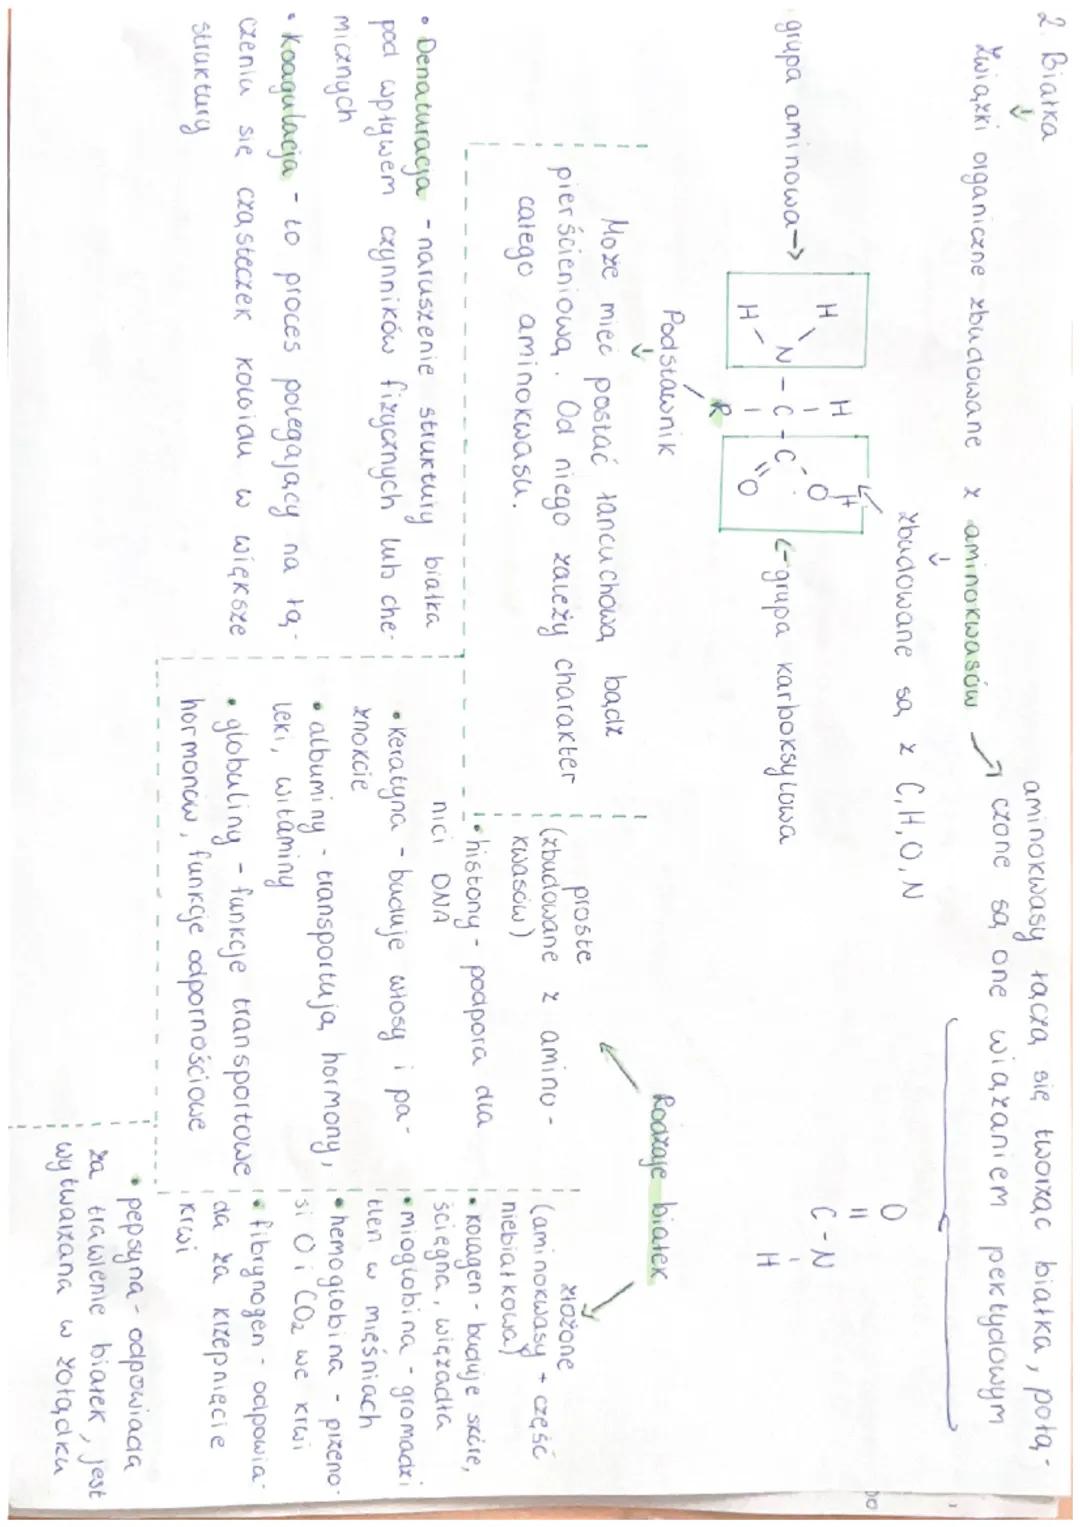 2. Białka
Związki organiczne zbudowane z aminokwasów
aminokwasy łączą się tworząc białka, połą-
czone są one wiązaniem pektydowym
zbudowane są z C, H, O, N
grupa aminowa
H
H
N - C - C
H
R
O
H
O
grupa karboksylowa
O
C - N
H
Podstawnik
Może mieć postać łańcuchową bądź
pierścieniową. Od niego zależy charakter
całego aminokwasu.
• Denaturacja - naruszenie struktury białka
pod wpływem czynników fizycznych lub che-
micznych
• Koagulacja - to proces polegający na łą-
czeniu się cząsteczek koloidu w większe
struktury
Rodzaje białek
proste
(zbudowane z amino-
kwasów)
• histony - podpora dla
nici DNA
• keratyna - buduje włosy i pa-
znokcie
• albuminy - transportują hormony,
leki, witaminy
• globuliny - funkcje transportowe
hormonów, funkcje odpornościowe
złożone
(aminokwasy + część
niebiałkowa)
• kolagen - buduje skórę,
ścięgna, więzadła
• mioglobina - gromadzi
tlen w mięśniach
• hemoglobina - przeno-
si O i CO2 we krwi
• fibrynogen - odpowia-
da za krzepnięcie
krwi
• pepsyna - odpowiada
za trawienie białek, jest
wytwarzana w żołądku